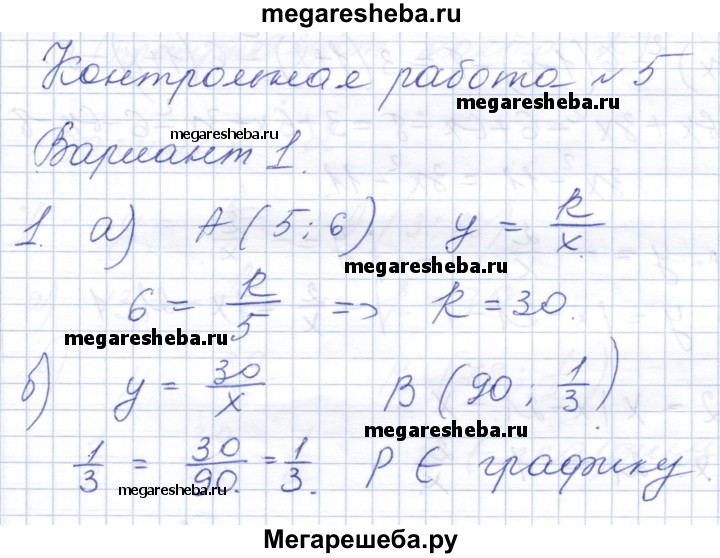 megaresheba.ru
Контрольная работа № 5
megaresheba.ru
megaresheba.ru
Вариант 1.
1. а) A (5; 6) y = k/x
megaresheba.ru
6 = k/5 => k = 30.
megaresheba.ru
б) y = 30/x B (90; 1/3)
megaresheba.ru
1/3 = 30/90. = 1/3. P ∈ графику
megaresheba.ru
Мегарешеба.ру